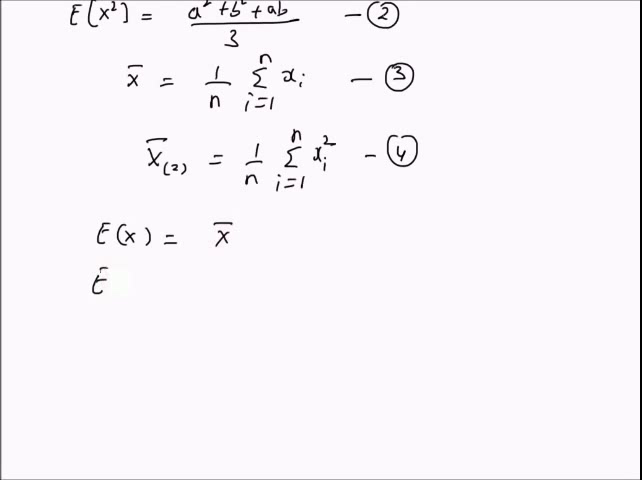 E[x²] = a² + b² + ab / 3 — ②
x̄ = 1/n Σ_{i=1}^{n} x_i — ③
X̄_(2) = 1/n Σ_{i=1}^{n} x_i² — ④
E(x) = x̄
E